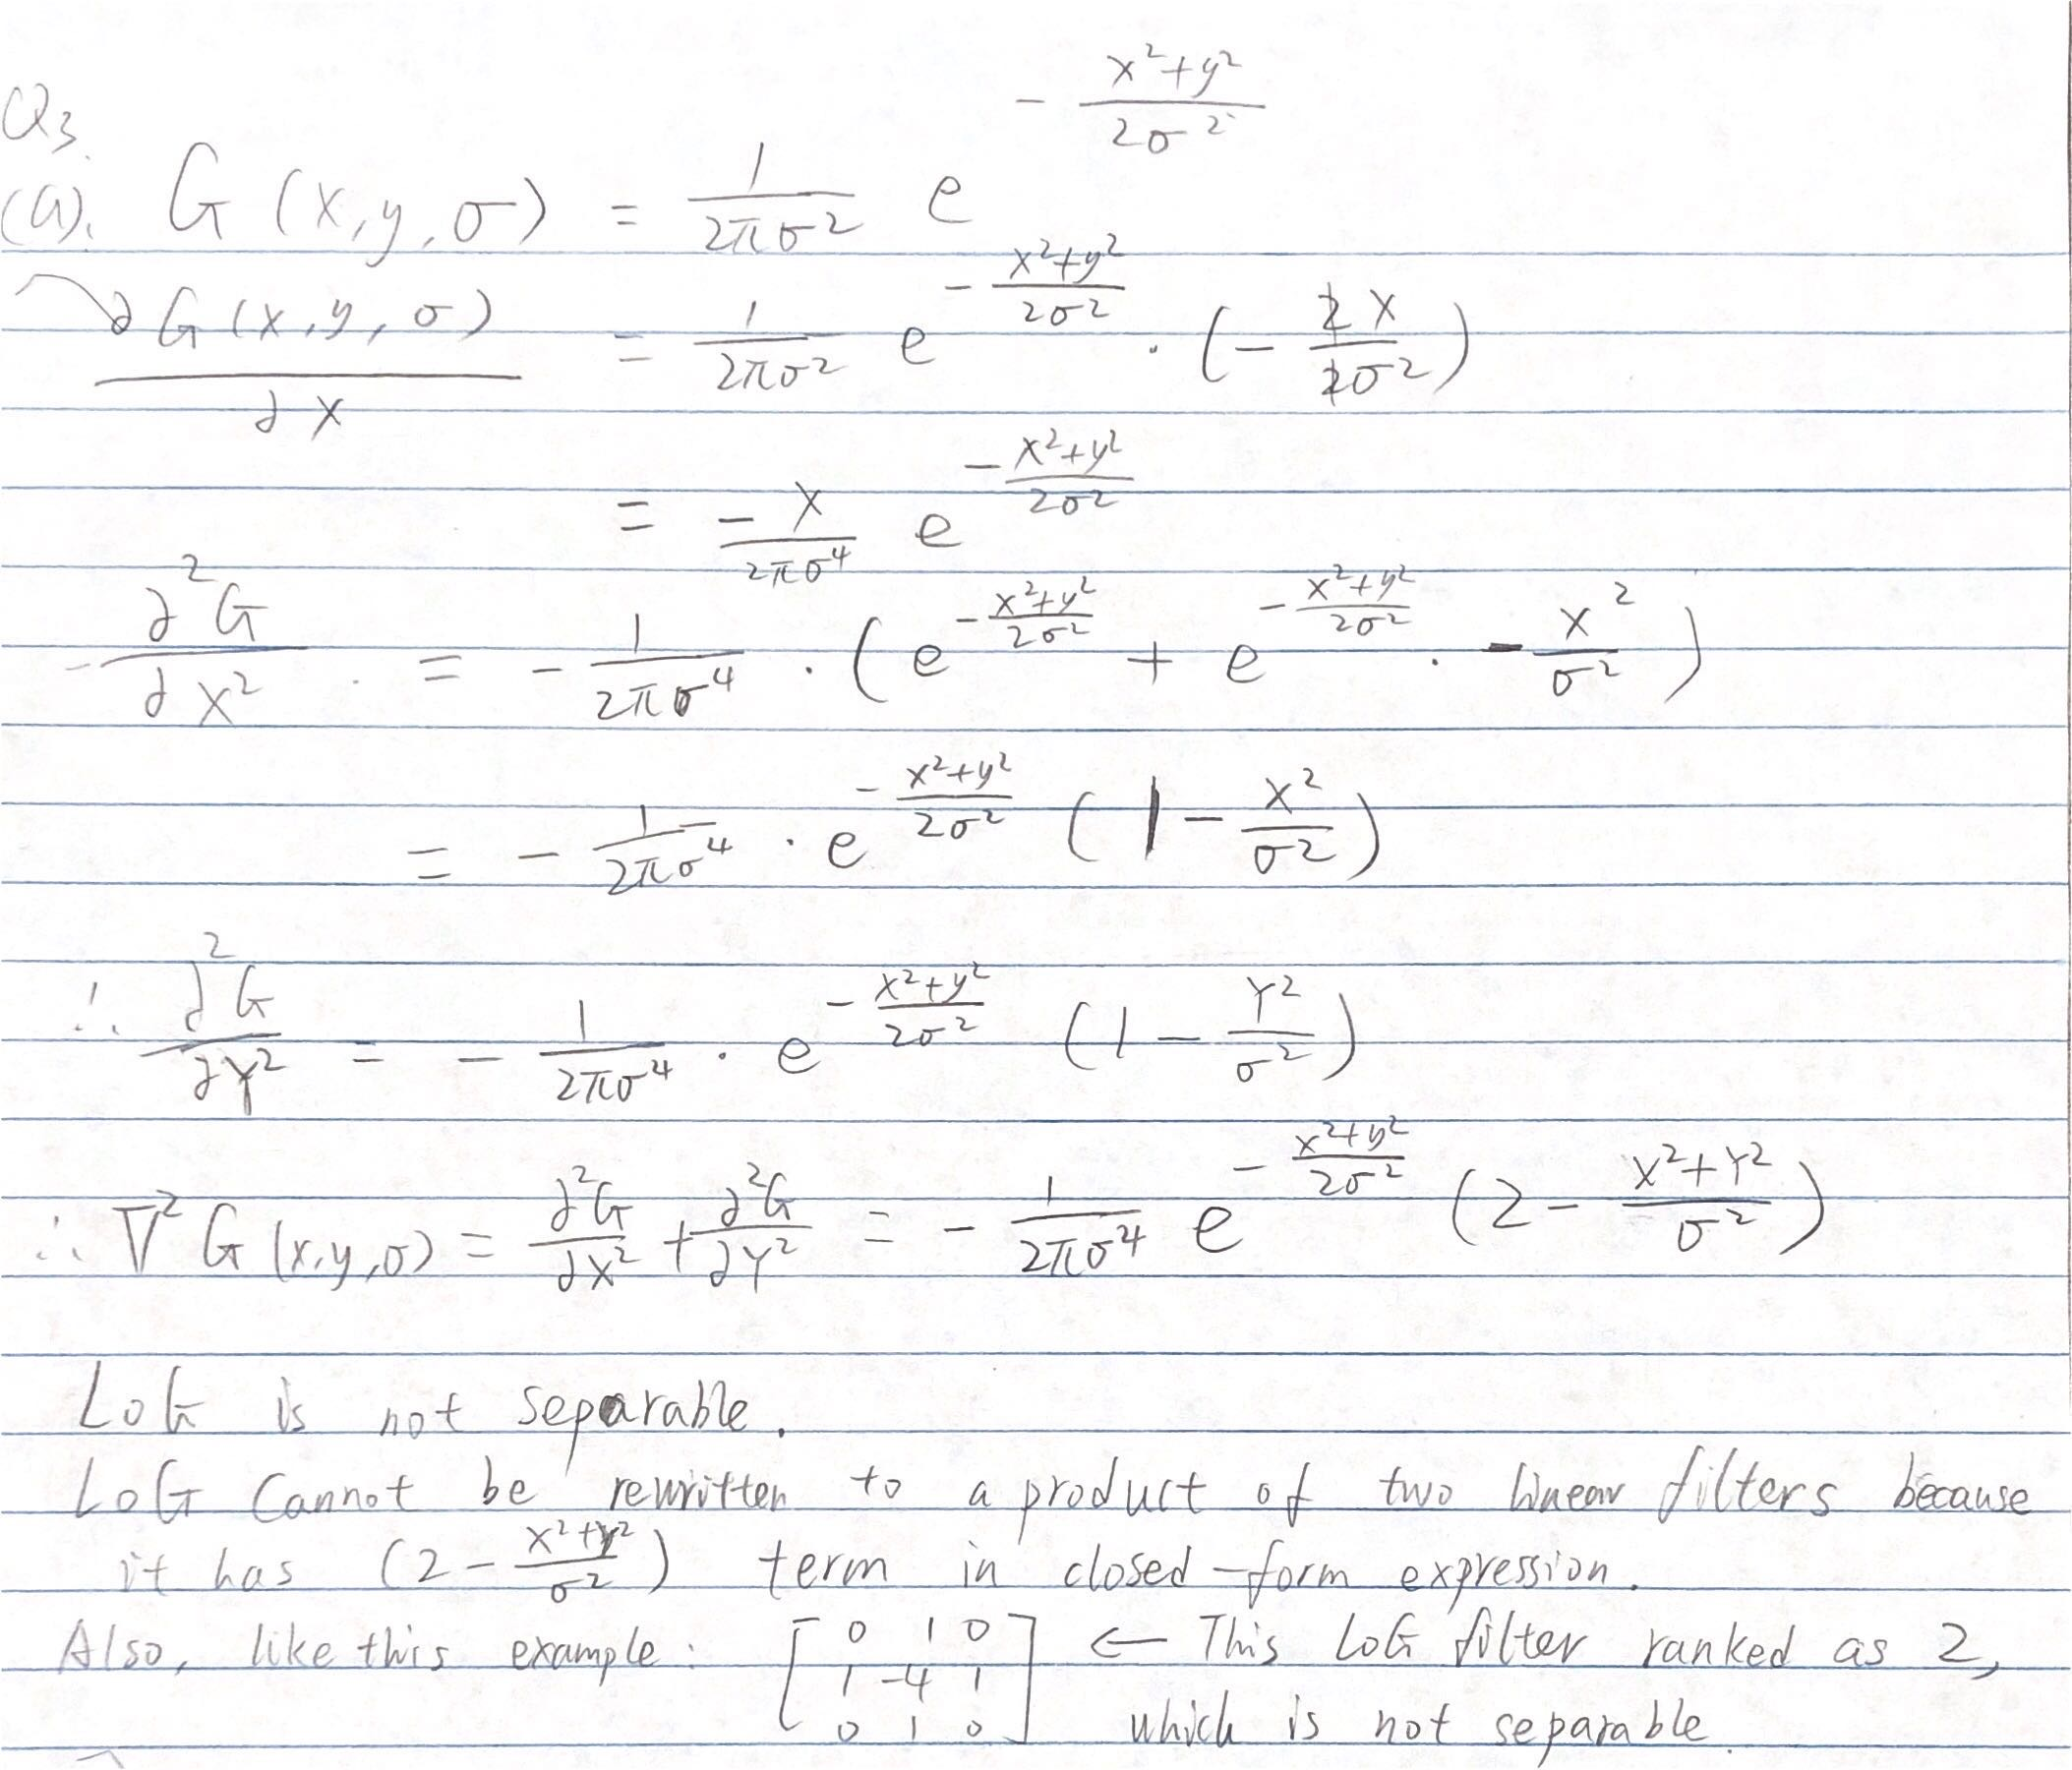 Q3.
(a). G(x,y,σ) = 1/(2πσ²) e^(-(x²+y²)/(2σ²))
∂G(x,y,σ)/∂x = 1/(2πσ²) e^(-(x²+y²)/(2σ²)) · (-2x/(2σ²))
= -x/(2πσ⁴) e^(-(x²+y²)/(2σ²))
∂²G/∂x² = -1/(2πσ⁴) · (e^(-(x²+y²)/(2σ²)) + e^(-(x²+y²)/(2σ²)) · -x²/σ²)
= -1/(2πσ⁴) · e^(-(x²+y²)/(2σ²)) (1 - x²/σ²)
∴ ∂²G/∂Y² = -1/(2πσ⁴) · e^(-(x²+y²)/(2σ²)) (1 - Y²/σ²)
∴ ∇²G(x,y,σ) = ∂²G/∂x² + ∂²G/∂Y² = -1/(2πσ⁴) e^(-(x²+y²)/(2σ²)) (2 - (x²+Y²)/σ²)
LoG is not separable.
LoG cannot be rewritten to a product of two linear filters because
it has (2 - (x²+Y²)/σ²) term in closed-form expression.
Also, like this example: [0 1 0 ← This LoG filter ranked as 2,
1 -4 1
0 1 0] which is not separable.